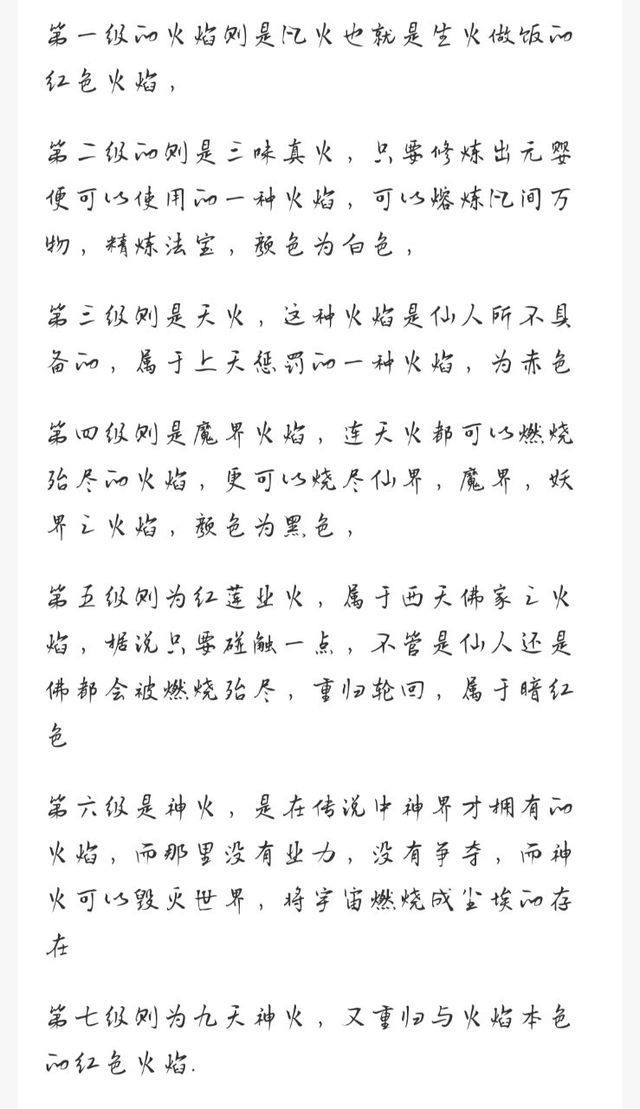 第一级的火焰则是凡火也就是生火做饭的
红色火焰，
第二级的则是三味真火，只要修炼出元婴
便可以使用的一种火焰，可以熔炼凡间万
物，精炼法宝，颜色为白色，
第三级则是天火，这种火焰是仙人所不具
备的，属于上天惩罚的一种火焰，为赤色
第四级则是魔界火焰，连天火都可以燃烧
殆尽的火焰，更可以烧尽仙界，魔界，妖
界之火焰，颜色为黑色，
第五级则为红莲业火，属于西天佛家之火
焰，据说只要碰触一点，不管是仙人还是
佛都会被燃烧殆尽，重归轮回，属于暗红
色
第六级是神火，是在传说中神界才拥有的
火焰，而那里没有业力，没有争夺，而神
火可以毁灭世界，将宇宙燃烧成尘埃的存
在
第七级则为九天神火，又重归与火焰本色
的红色火焰.